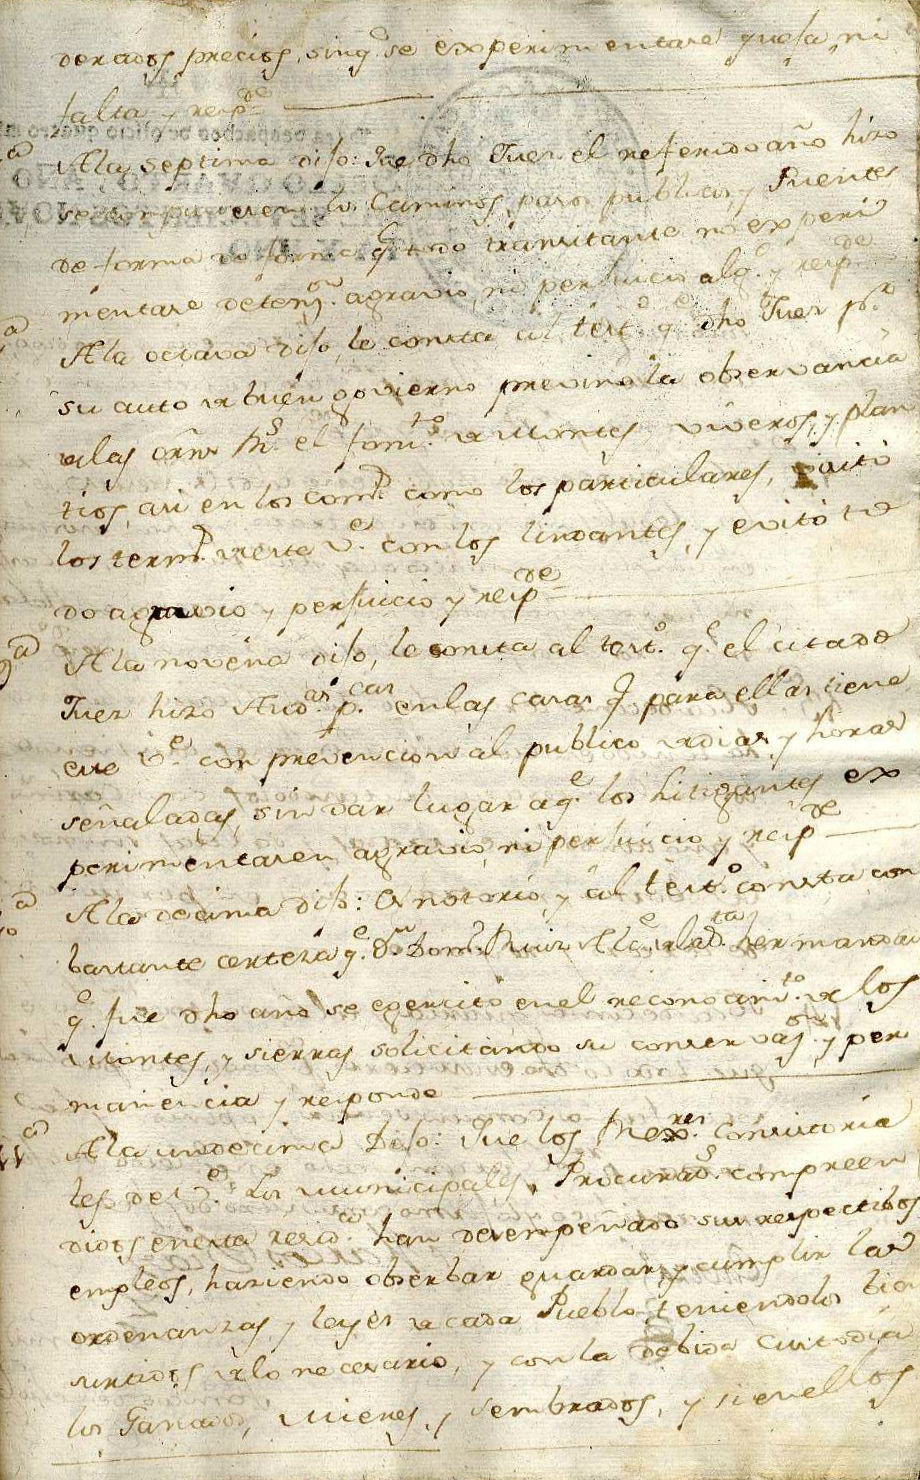 derados precios, sinq.e se experimentare quexa, ni
falta, y resp.de
A la septima dijo: Que dho Juez el referido año hizo
se compusiesen los Caminos, pasos publicos, y Puentes
de forma q.e todo transitante no experi
mentare deten.on agravio, ni perjuicio alg.o y resp.de
8.a
A la octava dijo, le consta al test.o q.e dho Juez p.r
su auto de buen govierno previno la observancia
de las ornes R.s el fom.to de Montes, viveros, y plan
tios, asi en los com.s como los particulares, visitó
los term.s de esta v.e con los lindantes, y evitó to
do agravio y perjuicio y resp.de
9.a
A la novena dijo, le consta al test.o q.e el citado
Juez hizo Aud.as p.cas en las casas q.e para ellas tiene
este v.e con prevencion al publico de dias, y horas
señaladas, sin dar lugar a q.e los litigantes ex
perimentasen agravio, ni perjuicio y resp.de
10.a
A la decima dijo: Es notorio, y al test.o consta con
bastante certeza q.e Dn Dom.o Ruiz Alc.e de la S.ta hermandad
q.e fue dho año se egercitó en el reconocim.to de los
Montes, y sierras solicitando su conservas.on y per
manencia y responde
11.a
A la undecima Dijo: Que los Mex.res Consistoria
les de v.e Los municipales, Procurad.s compreen
didos en esta resid.a han desempeñado sus respectibos
empleos, haziendo obserbar guardar, y cumplir las
ordenanzas, y leyes de cada Pueblo teniendolos bien
surtidos de lo necesario, y con la debida Custodia
los Ganados, Mieses, y sembrados, y si en ellos